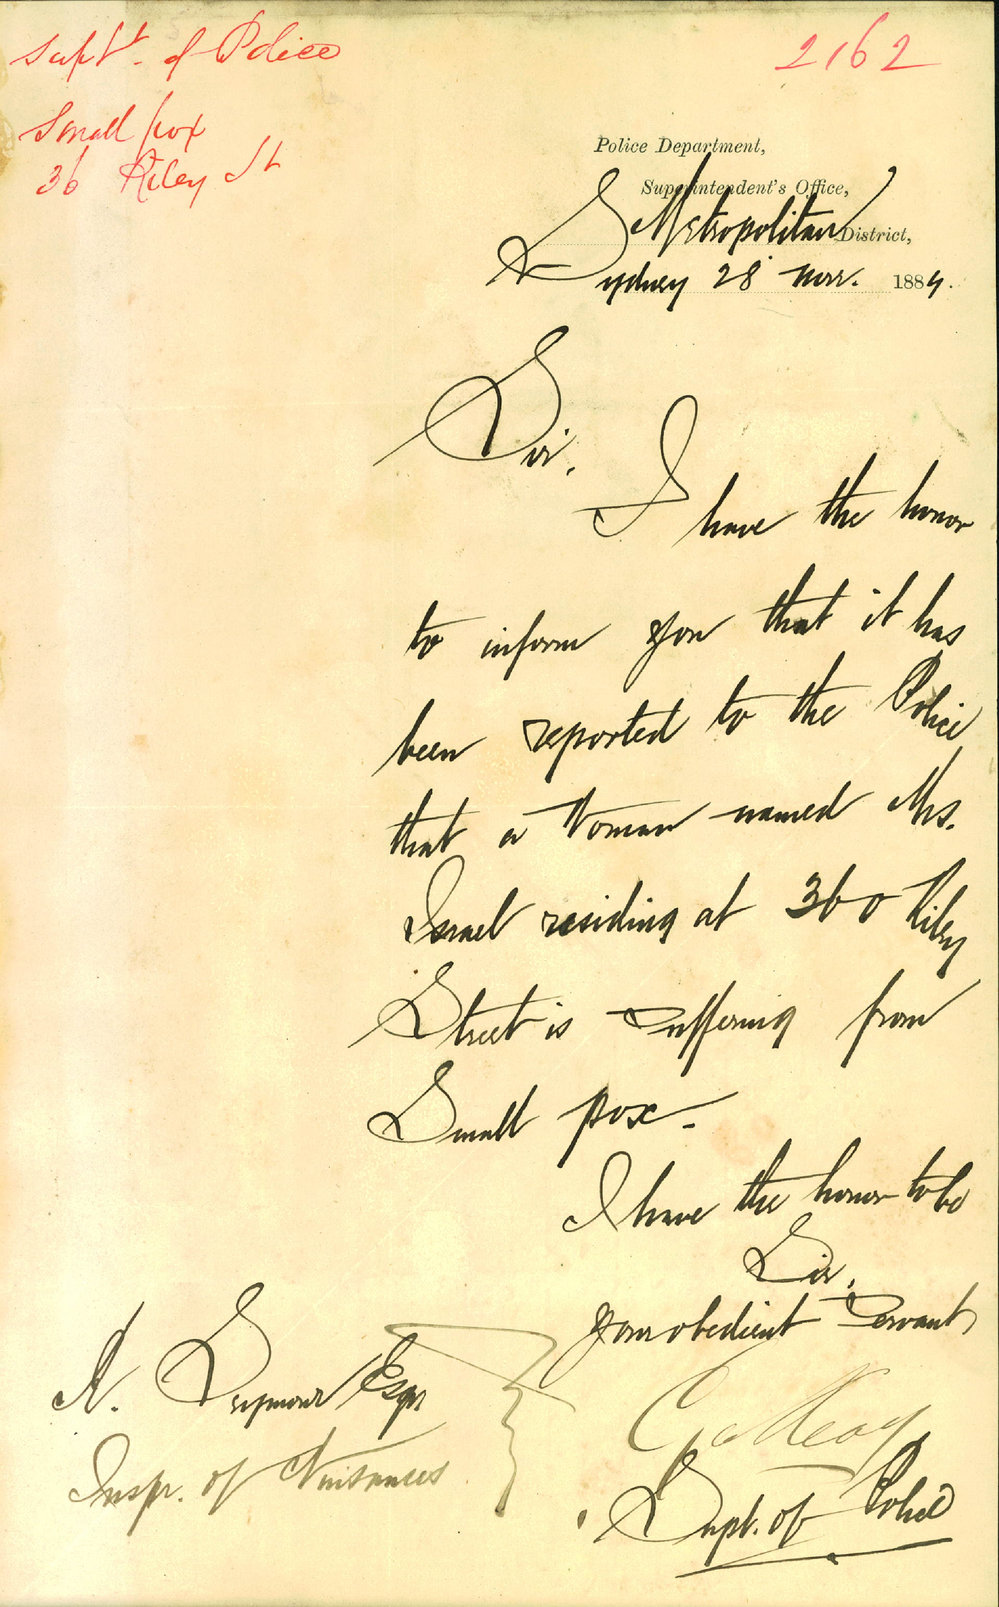 Supt. of Police
2162
Small pox
36 Riley St
Police Department,
Superintendent's Office,
Metropolitan District,
Sydney 28 Novr. 1884.
Sir,
I have the honor
to inform you that it has
been reported to the Police
that a Woman named Mrs.
Israel residing at 360 Riley
Street is suffering from
Small pox.
I have the honor to be
Sir,
your obedient Servant,
Seymour Esqr
Insp. of Nuisances
Supt. of Police